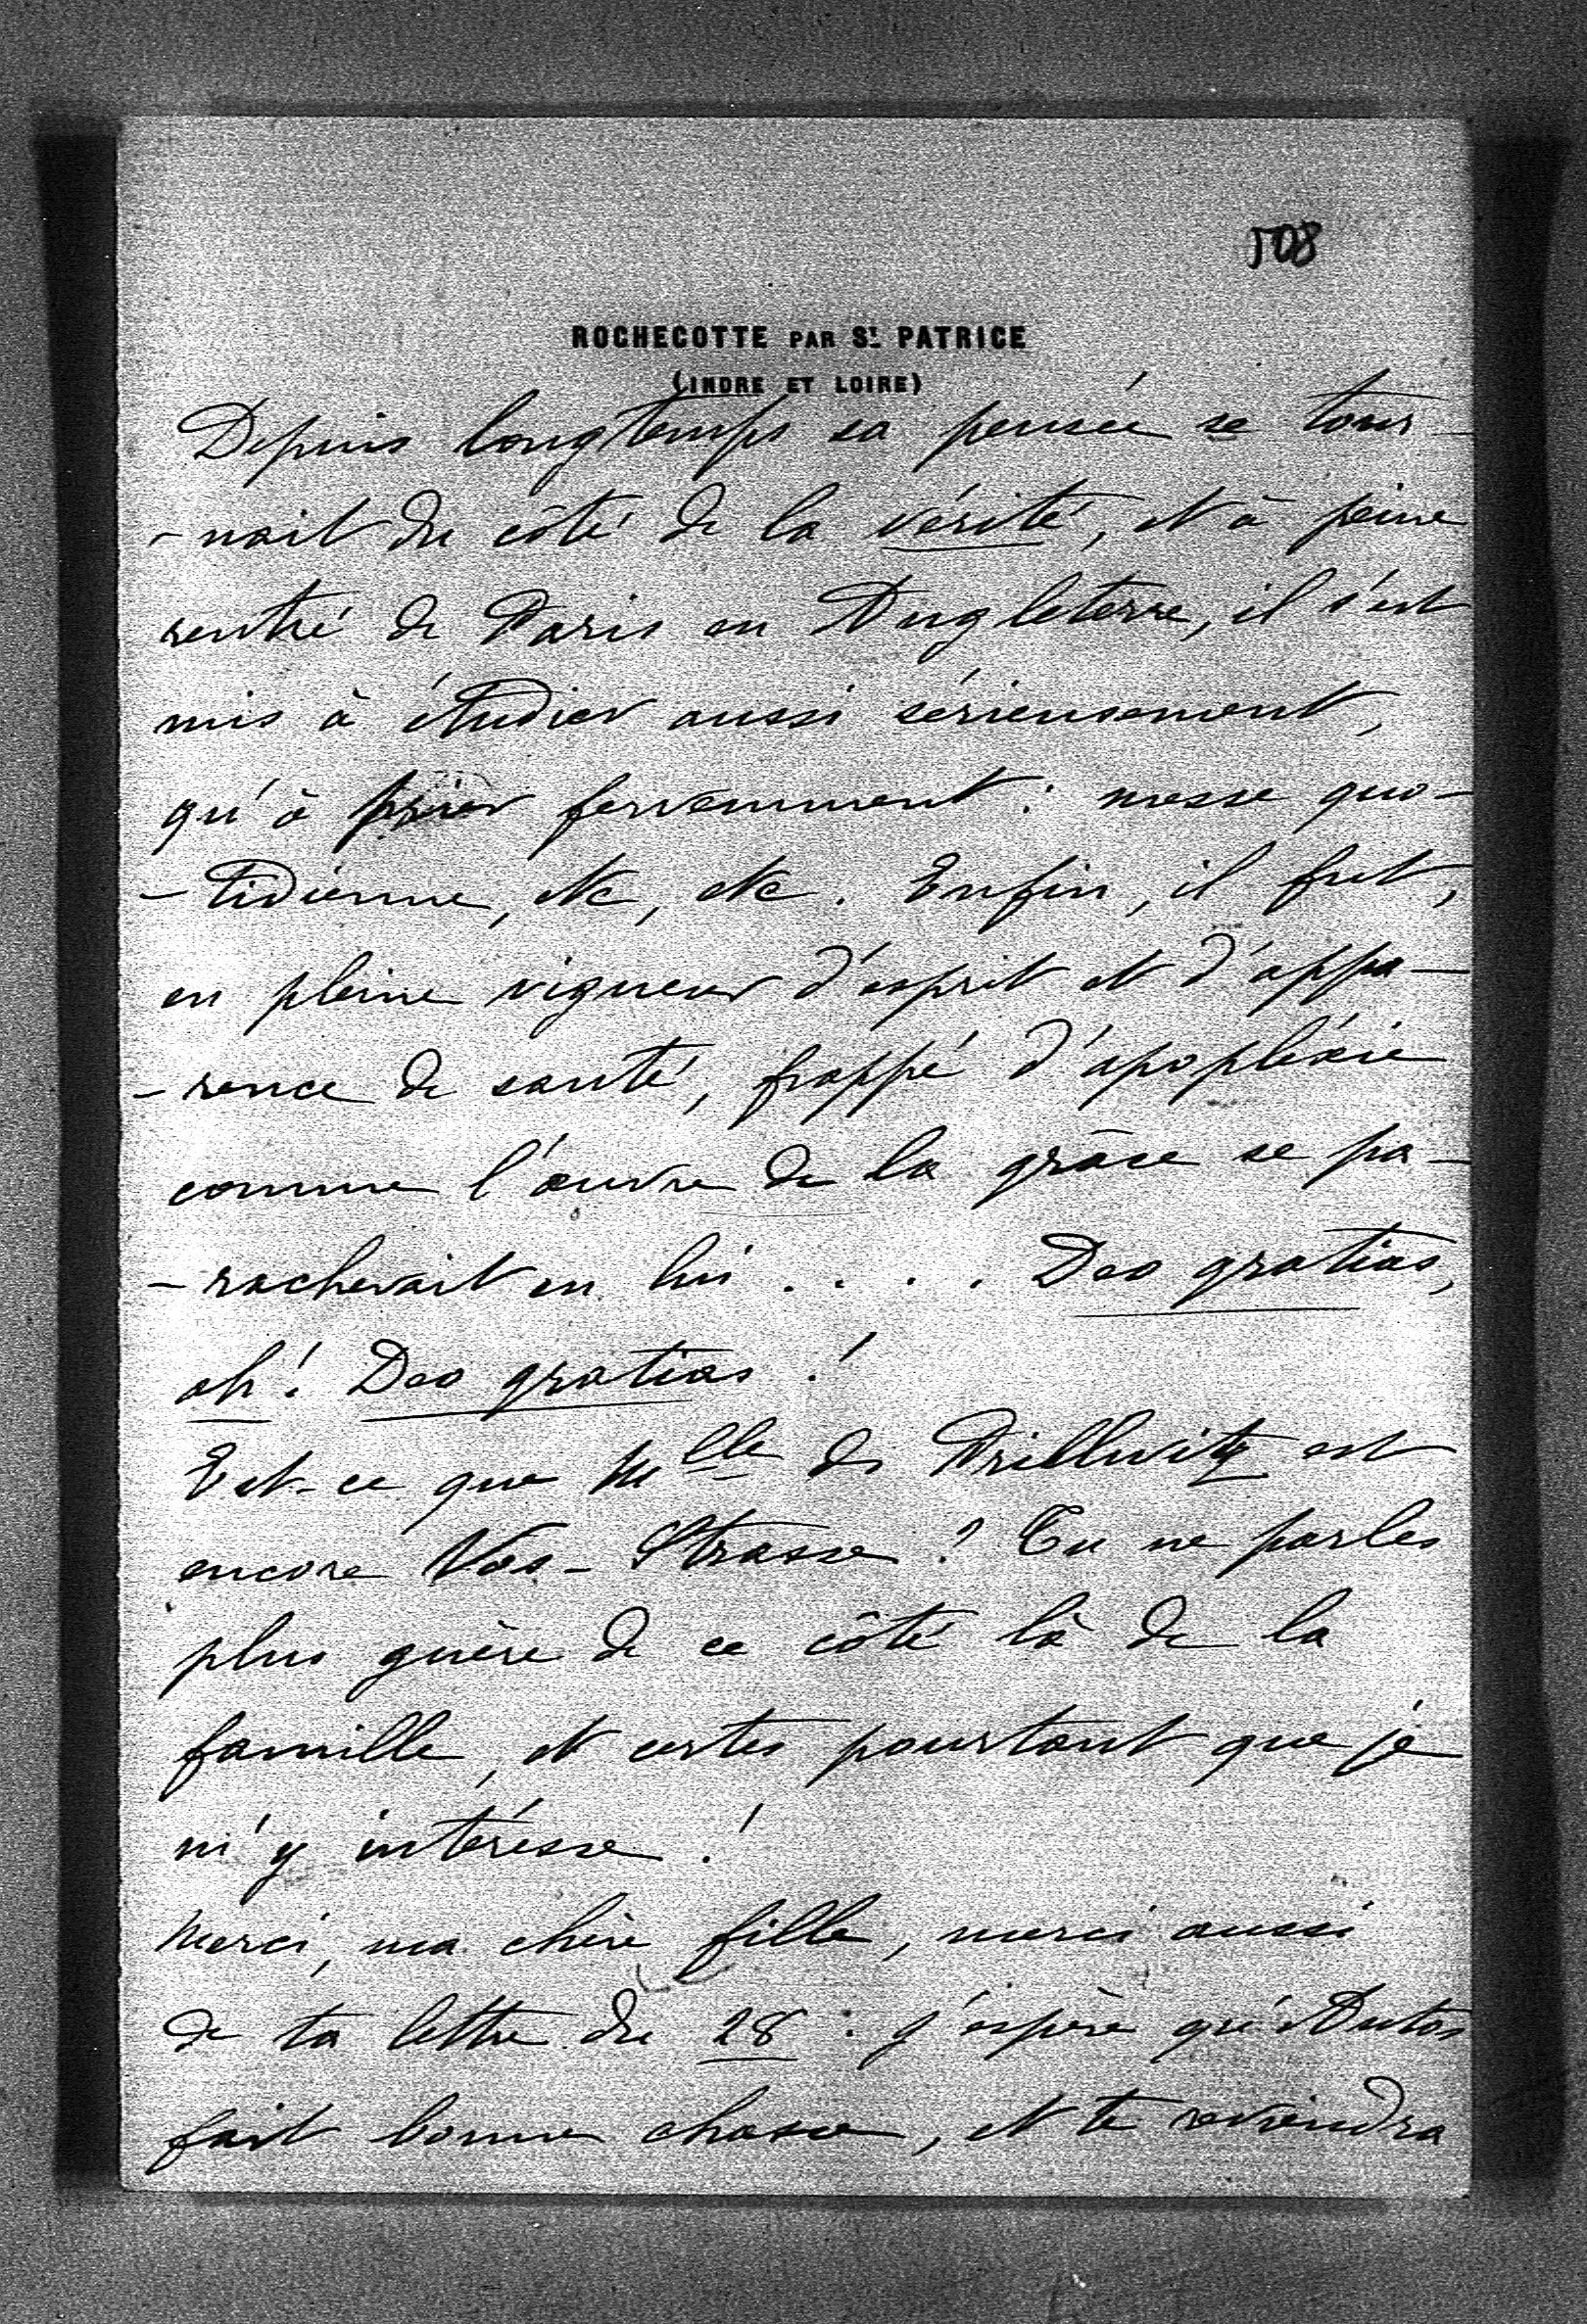 508
ROCHECOTTE PAR St. PATRICE
(INDRE ET LOIRE)
Depuis longtemps sa pensée se tour-
-nait du côté de la vérité, et à peine
rentré de Paris en Angleterre, il s'est
mis à étudier aussi sérieusement,
qu'à prier fervemment : messe quo-
-tidienne, etc, etc. Enfin, il fut,
en pleine vigueur d'esprit et d'appa-
-rence de santé, frappé d'apopléxie
comme l'œuvre de la grâce se pa-
-rachevait en lui . . . . Deo gratias,
oh! Deo gratias !
Est-ce que Mlle de Prillwitz est
encore Vos-Strasse ? Tu ne parles
plus guère de ce côté là de la
famille, et certes pourtant que je
m'y intéresse !
Merci, ma chère fille, merci aussi
de ta lettre du 28 : j'espère qu'Anton
fait bonne chasse, et te reviendra